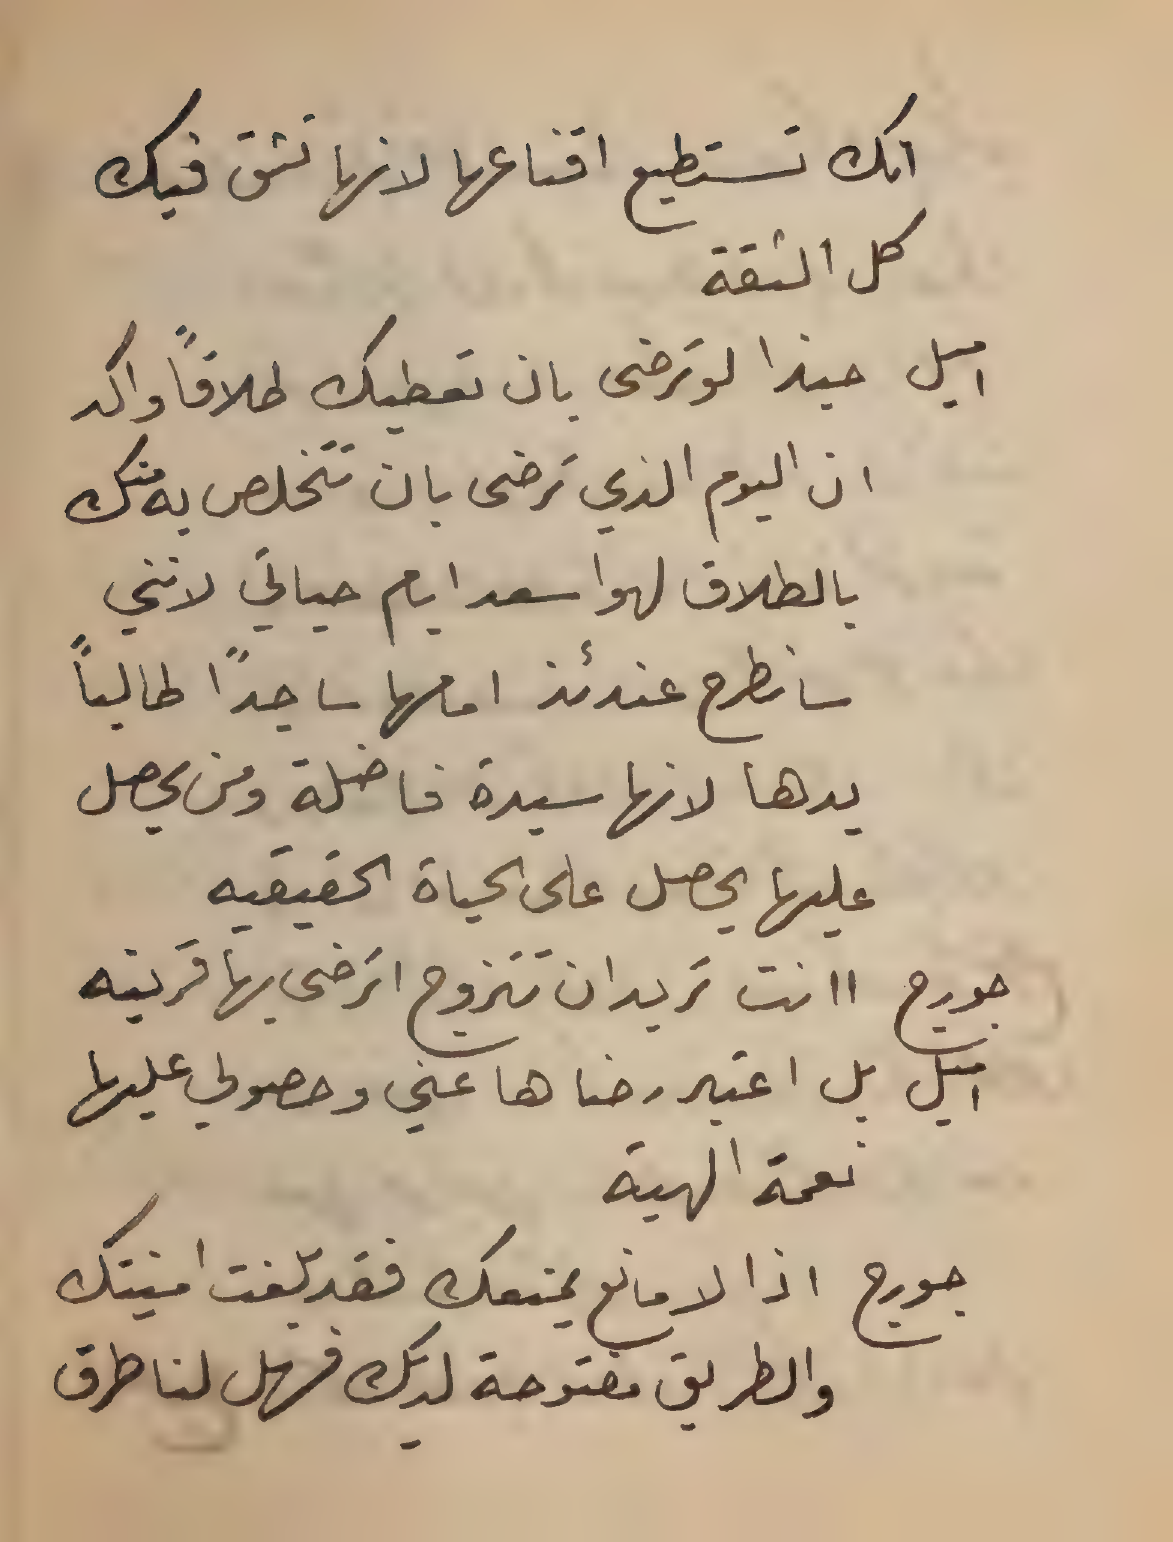 انك تستطيع اقناعها لانها تثق فيك
كل الثقة
اميل حبذا لو ترضى بان تعطيك طلاقاً واكد
ان اليوم الذي ترضى بان تتخلص به منك
بالطلاق لهو اسعد ايام حياتي لانني
سانطرح عندئذ امامها ساجداً طالباً
يدها لانها سيدة فاضلة ومن يحصل
عليها يحصل على الحياة الحقيقيه
جورج اانت تريد ان تتزوج اترضى بها قرينه
اميل بل اعتبر رضاها عني وحصولي عليها
نعمة الهية
جورج اذا لا مانع يمنعك فقد بلغت امنيتك
والطريق مفتوحة لديك فهل لنا طرق